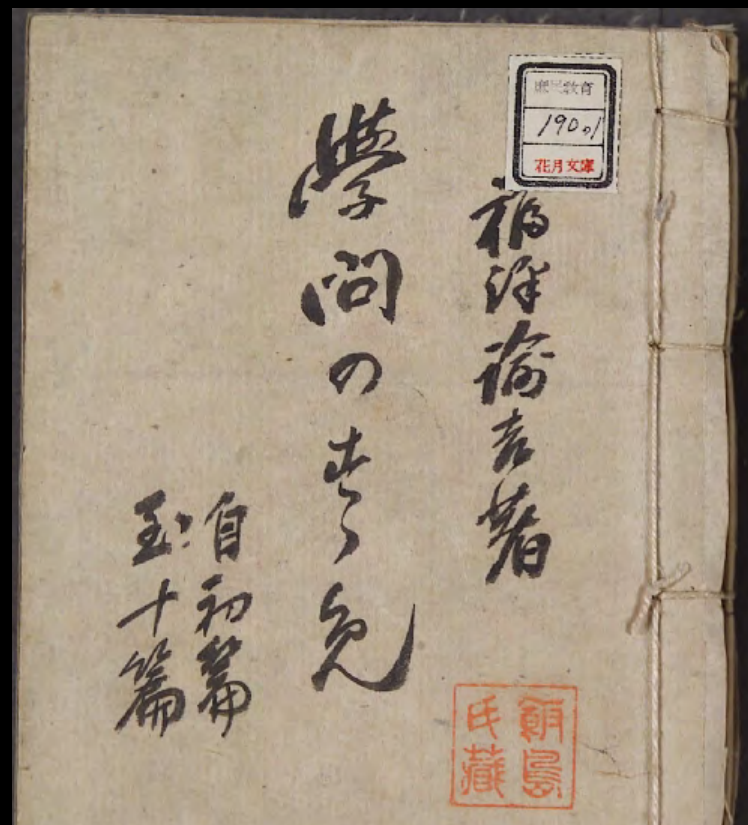 庶民教育
190.1
花月文庫
福澤諭吉著
學問のすゝめ
自初篇
至十篇
飯島
氏藏